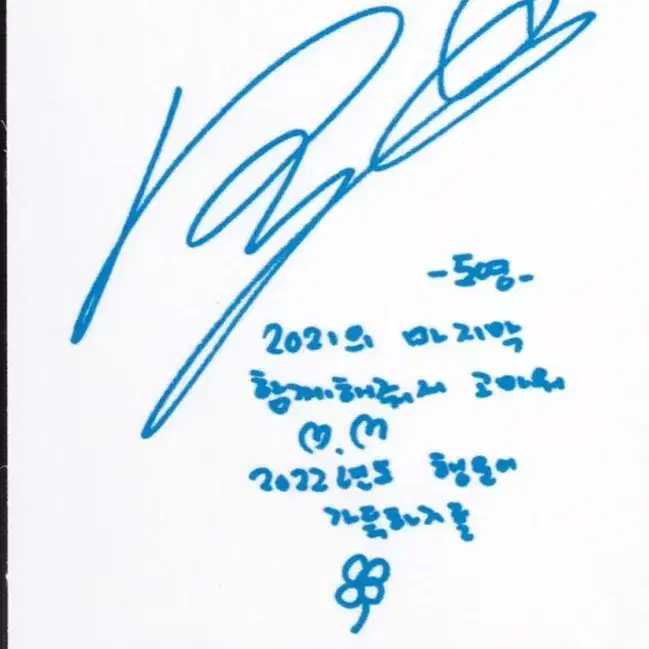 -도영-
2021의 마지막
함께해줘서 고마워
2022년도 행운이
가득하기를